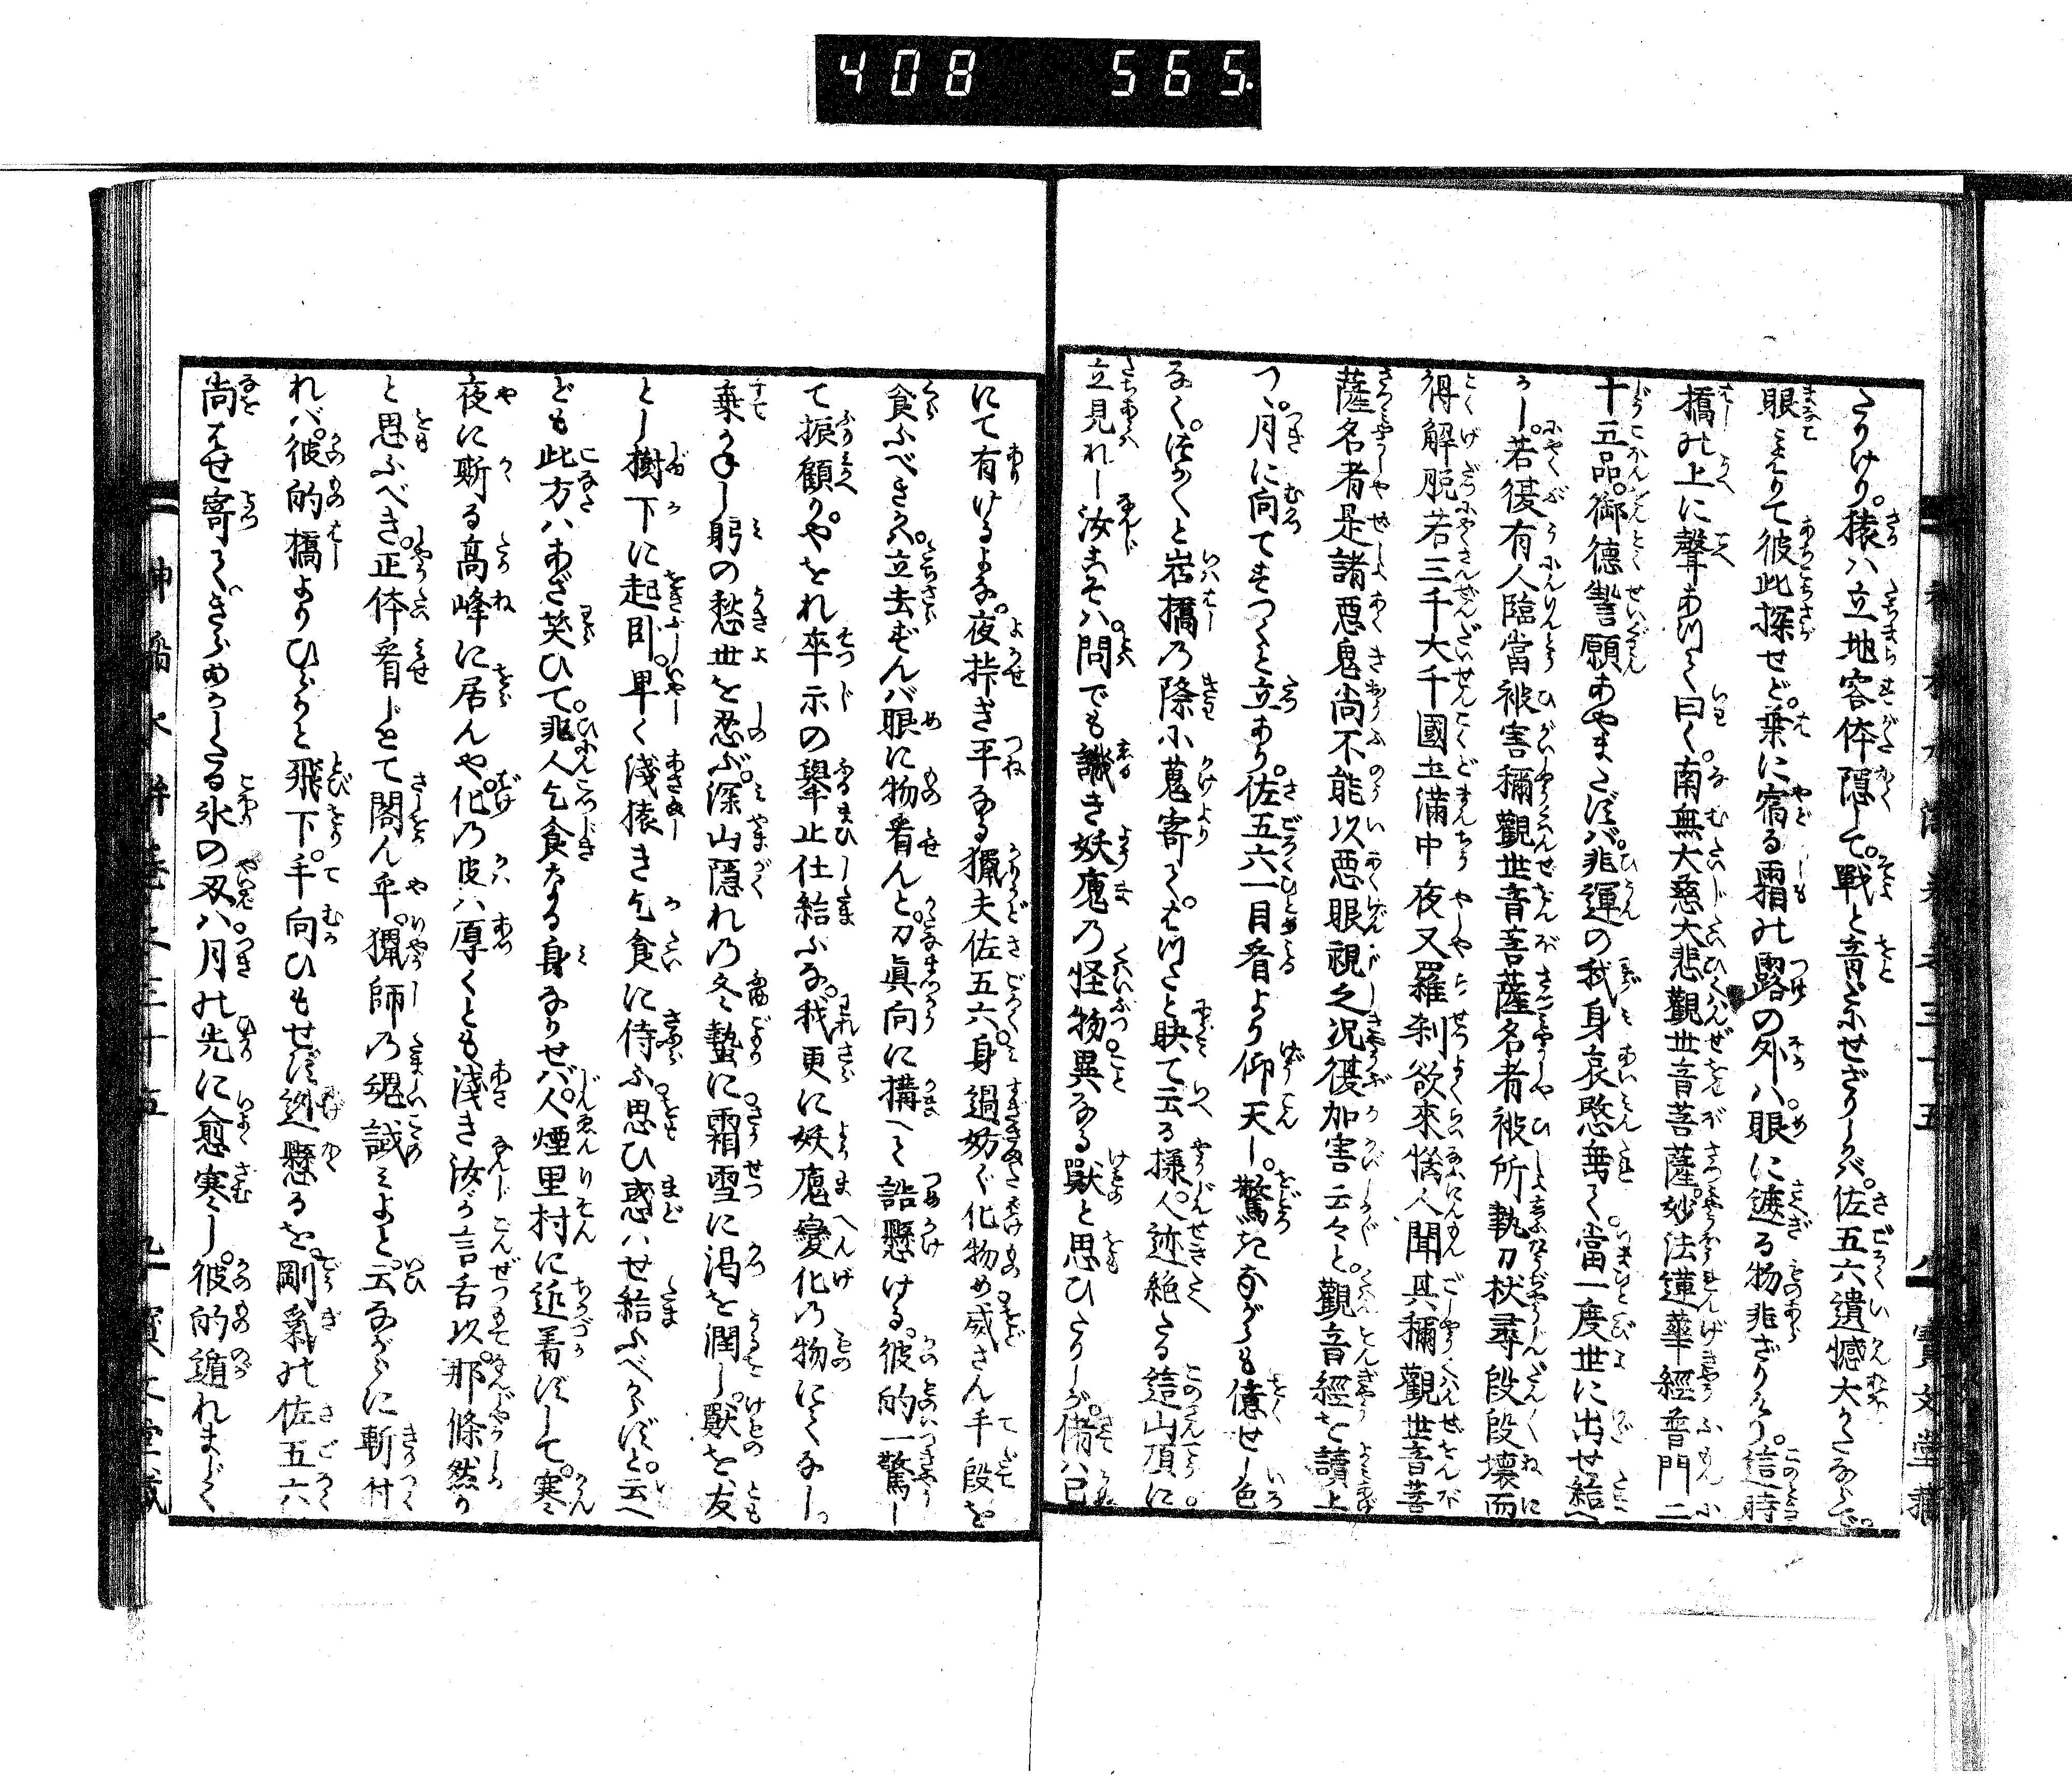 408 565.
さりけり。猿ハ立地容体隠して。戦と音だにせざりしかバ。佐五六遺憾大かたならで。
眼みはりて彼此探せど。葉に宿る霜の露の外ハ眼に遮る物非ざりけり。這時
橋の上に聲ありて曰く。南無大慈大悲觀世音菩薩。妙法蓮華經普門
十五品。御徳誓願あやまたずバ。非運の我身哀愍垂て。當一度世に出せ給へ
かし。若復有人臨當被害稱觀世音菩薩名者被所執刀杖尋段段壊而
得解脱若三千大千國土滿中夜叉羅刹欲來惱人聞其稱觀世音菩
薩名者是諸惡鬼尚不能以惡眼視之况復加害云々と。觀音經を讀上
つゝ。月に向てすつくと立あり。佐五六一目看より仰天し。驚きながらも憶せし色
なく。つか〳〵と岩橋の際に蔭寄て。はつたと䀹て云る様。人迹絶たる這山頂に
立見れし汝こそハ。問でも識き妖魔の怪物。異なる獣と思ひたりしが。偖ハ已
にて有けるよな。夜挊ぎ平なる獵夫佐五六。身過妨ぐ化物め威さん手段を
食ふべきか。立去ずんバ眼に物看せんと。刀真向に構へて詰懸ける。彼的一驚し
て振顧り。やをれ卒示の擧止仕給ふな。我更に妖魔變化の物にてなし。
棄かねし躬の愁世を忍ぶ。深山隠れの冬蟄に霜雪に渇を潤し。獣を友
とし樹下に起卧。卑く淺猿き乞食に侍ふ。思ひ惑ハせ給ふべからずと。云へ
ども此方ハあざ笑ひて。非人乞食なる身なりせバ。人煙里村に近着ずして。寒
夜に斯る高峰に居んや。化の皮ハ厚くとも淺き汝が言舌以。那條然か
と思ふべき。正体看じとて閣ん乎。獵師の魂試みよと。云ながらに斬付
れバ。彼的橋よりひらりと飛下。手向ひもせず逃懸るを。剛氣の佐五六
尚はせ寄て。きらめかしたる氷の刃ハ。月の光に愈寒し。彼的遁れまじく
卷之三十五
寶文堂藏
卷之三十五
九
寶文堂藏